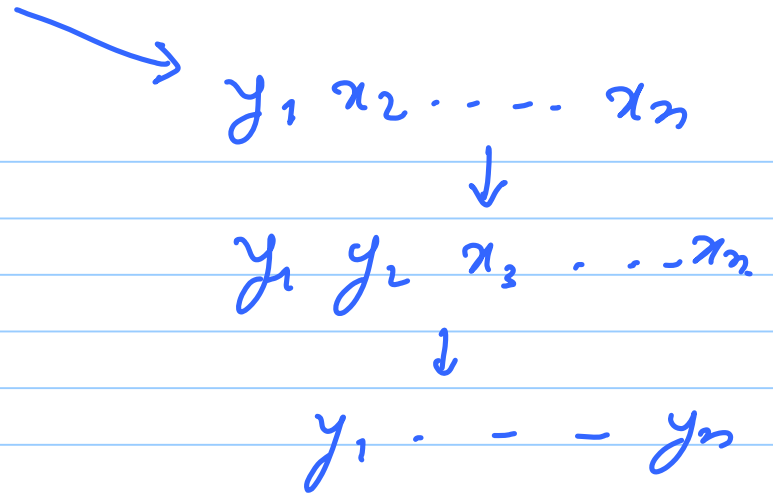 y₁ x₂ . - - . xₙ
y₁ y₂ x₃ . . - xₙ
y₁ . - - yₙ